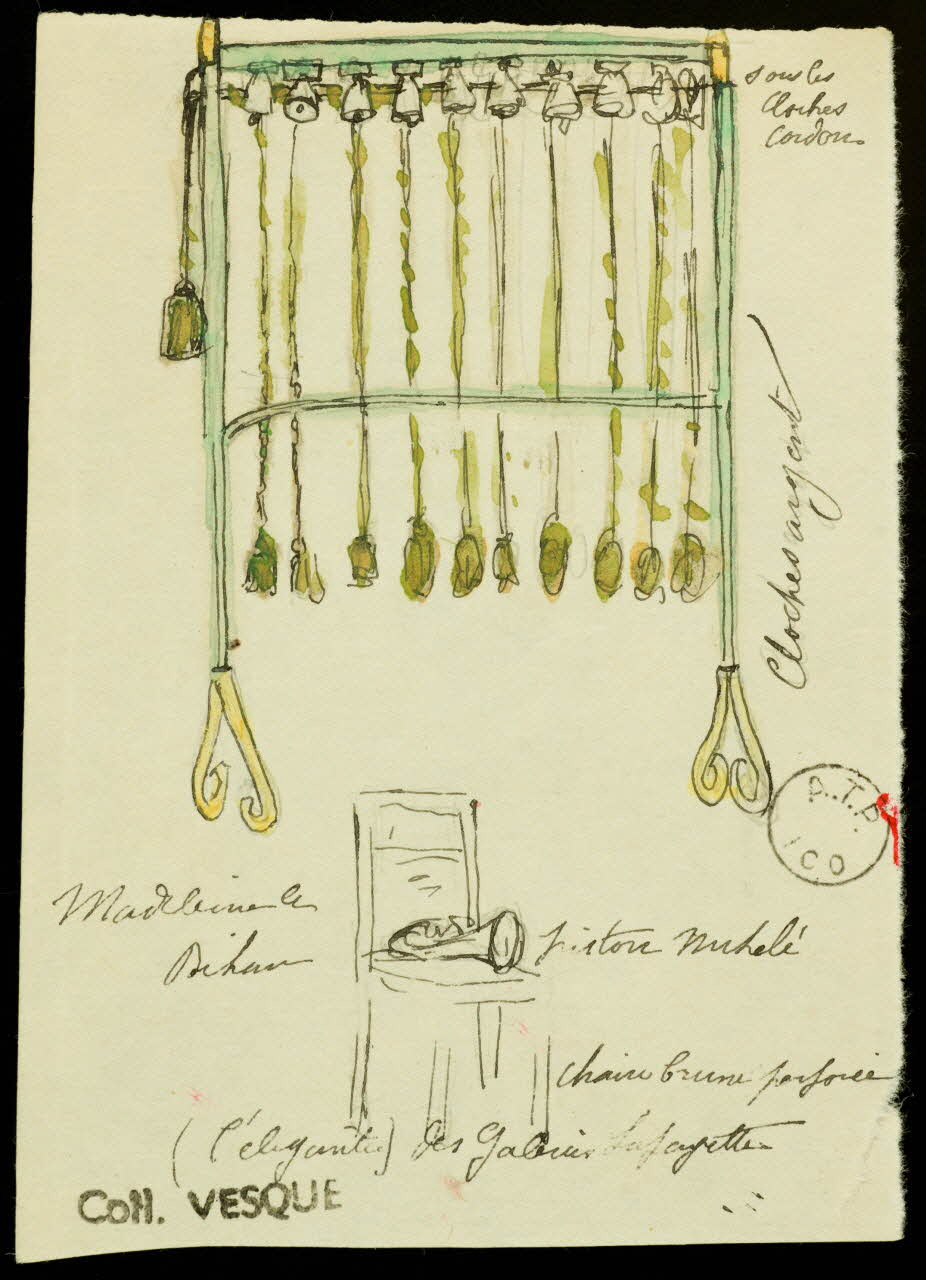 sous les
cloches
cordon
Cloches argent
A.T.P.
ICO
Madeleine le
Bihan
piston nickelé
chaise brune perforée
(l'élégante) des Galeries Lafayette
Coll. VESQUE